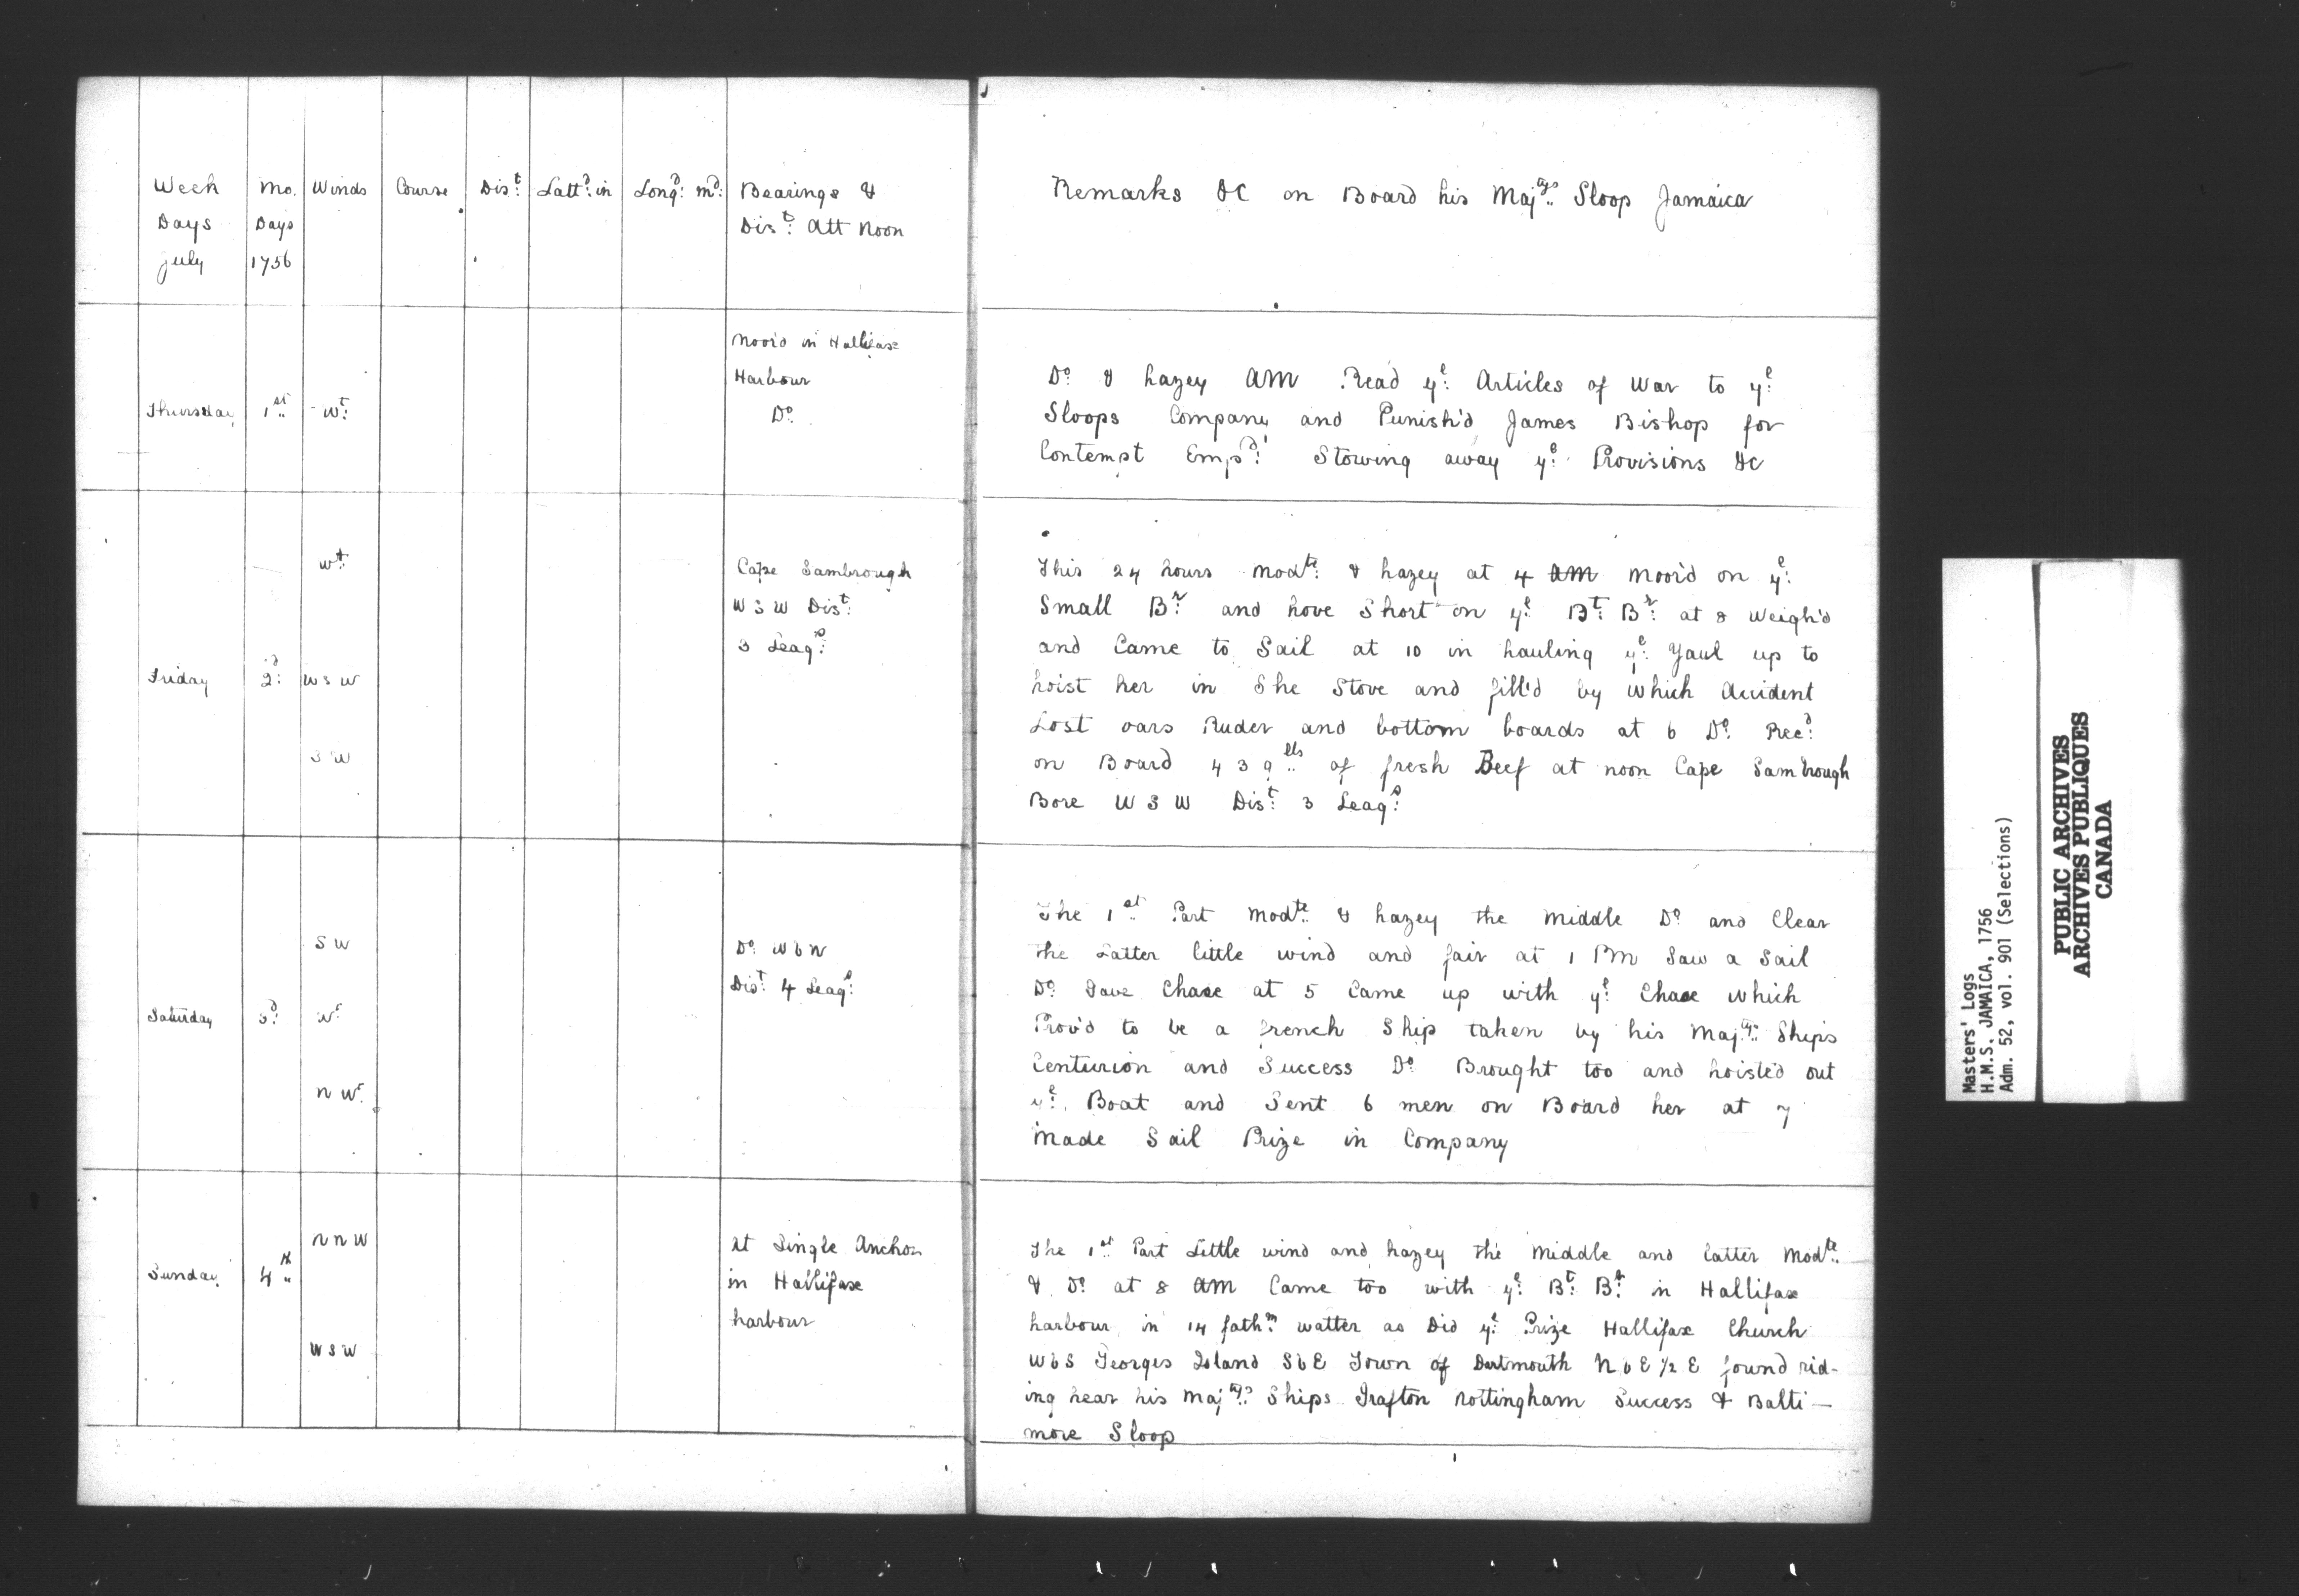 Week Days July
Mo. Days 1756
Winds
Course
Dis.t
Latt.d in
Long.d m.d
Bearings & Dis.t att noon
Remarks &C on Board his Maj.tys Sloop Jamaica
Thursday
1.st
W.t
Moor'd in Hallifax
Harbour
D.o
D.o & hazey AM Read y.e Articles of War to y.e
Sloops Company and Punish'd James Bishop for
Contempt Emp.d Stowing away y.e Provisions &c
Friday
2.d
W.t
W S W
S W
Cape Sambrough
W S W Dis.t
3 Leag.s
This 24 hours Mod.te & hazey at 4 AM Moor'd on y.e
Small B.r and hove Short on y.e B.t B.r at 8 Weigh'd
and Came to Sail at 10 in hauling y.e Yaul up to
hoist her in She Stove and fill'd by which Accident
Lost oars Ruder and bottom boards at 6 D.o Rec.d
on Board 439 lbs of fresh Beef at noon Cape Sambrough
Bore W S W Dis.t 3 Leag.s
Saturday
3.d
S W
W.t
N W.
D.o W b N
Dis.t 4 Leag.s
The 1.st Part Mod.te & hazey the Middle D.o and Clear
the Latter little wind and fair at 1 PM Saw a Sail
D.o Gave Chase at 5 Came up with y.e Chase which
Prov'd to be a french Ship taken by his Maj.tys Ships
Centurion and Success D.o Brought too and hoisted out
y.e Boat and Sent 6 men on Board her at 7
Made Sail Prize in Company
Sunday
4.th
N N W
W S W
At Single Anchor
in Hallifax
harbour
The 1.st Part Little wind and hazey the Middle and Latter Mod.te
& D.o at 8 AM Came too with y.e B.t B.r in Hallifax
harbour in 14 fath.m watter as Did y.e Prize Hallifax Church
W b S Georges Island S b E Town of Dartmouth N b E 1/2 E found rid-
ing hear his Maj.tys Ships Grafton Nottingham Success & Balti-
more Sloop
Masters' Logs
H.M.S. JAMAICA, 1756
Adm. 52, vol. 901 (Selections)
PUBLIC ARCHIVES
ARCHIVES PUBLIQUES
CANADA